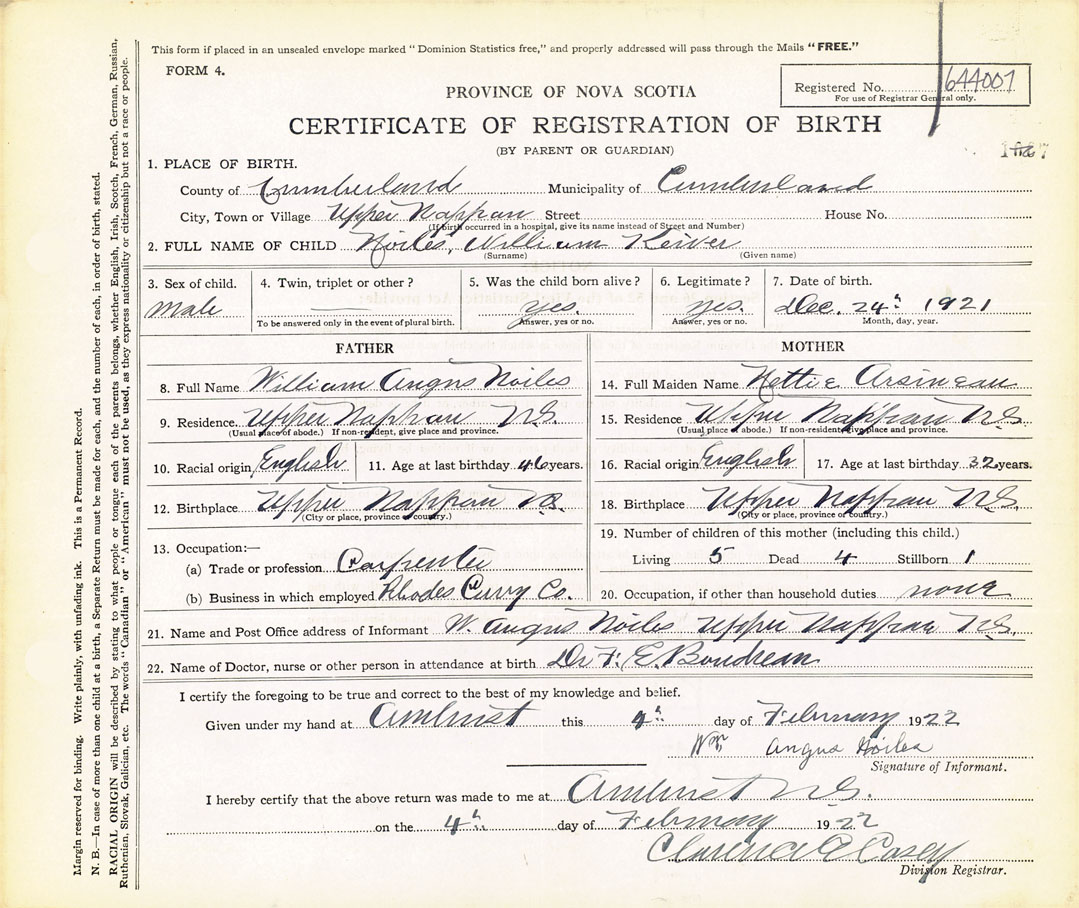 This form if placed in an unsealed envelope marked "Dominion Statistics free," and properly addressed will pass through the Mails "FREE."
FORM 4.
Registered No. 644007
For use of Registrar General only.
PROVINCE OF NOVA SCOTIA
CERTIFICATE OF REGISTRATION OF BIRTH
(BY PARENT OR GUARDIAN)
1. PLACE OF BIRTH.
County of Cumberland Municipality of Cumberland
City, Town or Village Upper Nappan Street House No.
(If birth occurred in a hospital, give its name instead of Street and Number)
2. FULL NAME OF CHILD Noiles, William Keiver
(Surname) (Given name)
3. Sex of child. 4. Twin, triplet or other? 5. Was the child born alive? 6. Legitimate? 7. Date of birth.
male yes. yes. Dec. 24th 1921
To be answered only in the event of plural birth. Answer, yes or no. Answer, yes or no. Month, day, year.
FATHER
8. Full Name William Angus Noiles
9. Residence. Upper Nappan N.S.
(Usual place of abode.) If non-resident, give place and province.
10. Racial origin English 11. Age at last birthday 46 years.
12. Birthplace Upper Nappan N.S.
(City or place, province or country.)
13. Occupation:—
(a) Trade or profession Carpenter
(b) Business in which employed Rhodes Curry Co.
MOTHER
14. Full Maiden Name Nettie Arsineau
15. Residence Upper Nappan N.S.
(Usual place of abode.) If non-resident, give place and province.
16. Racial origin English 17. Age at last birthday 32 years.
18. Birthplace Upper Nappan N.S.
(City or place, province or country.)
19. Number of children of this mother (including this child.)
Living 5 Dead 4 Stillborn 1
20. Occupation, if other than household duties none
21. Name and Post Office address of Informant W. Angus Noiles Upper Nappan N.S.
22. Name of Doctor, nurse or other person in attendance at birth Dr F. E. Boudreau
I certify the foregoing to be true and correct to the best of my knowledge and belief.
Given under my hand at Amherst this 4th day of February 1922
Wm Angus Noiles
Signature of Informant.
I hereby certify that the above return was made to me at Amherst N.S.
on the 4th day of February 1922
Clarence A Casey
Division Registrar.
Margin reserved for binding. Write plainly, with unfading ink. This is a Permanent Record.
N. B.—In case of more than one child at a birth, a Separate Return must be made for each, and the number of each, in order of birth, stated.
RACIAL ORIGIN will be described by stating to what people or tongue each of the parents belongs, whether English, Irish, Scotch, French, German, Russian,
Ruthenian, Slovak, Galician, etc. The words "Canadian" or "American" must not be used, as they express nationality or citizenship but not a race or people.